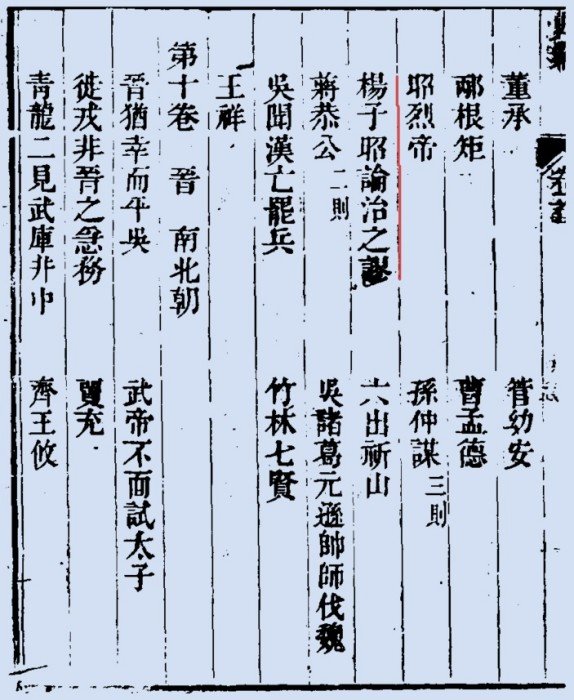 董承　管幼安
邴根矩　曹孟德
昭烈帝　孫仲謀三則
楊子昭論治之謬　六出祈山
蔣恭公二則　吳諸葛元遜帥師伐魏
吳聞漢亡罷兵　竹林七賢
王祥
第十卷　晉　南北朝
晉猶幸而平吳　武帝不面試太子
徙戎非晉之急務　賈充
青龍二見武庫井中　齊王攸